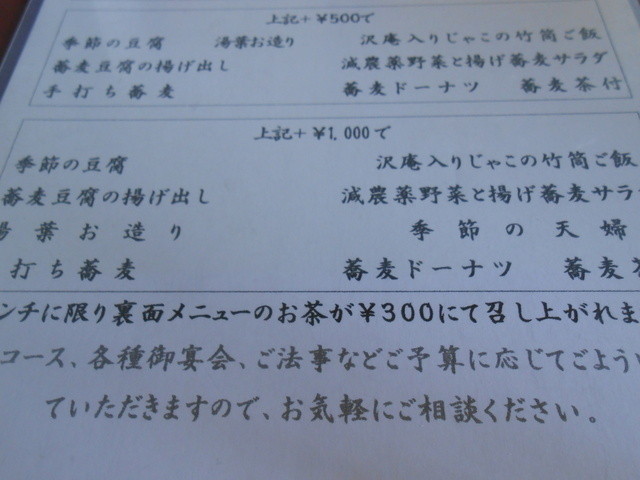 上記＋￥500で
季節の豆腐 湯葉お造り 沢庵入りじゃこの竹筒ご飯
蕎麦豆腐の揚げ出し 減農薬野菜と揚げ蕎麦サラダ
手打ち蕎麦 蕎麦ドーナツ 蕎麦茶付
上記＋￥1,000で
季節の豆腐 沢庵入りじゃこの竹筒ご飯
蕎麦豆腐の揚げ出し 減農薬野菜と揚げ蕎麦サラ
葉お造り 季節の天婦
打ち蕎麦 蕎麦ドーナツ 蕎麦
ンチに限り裏面メニューのお茶が￥300にて召し上がれま
コース、各種御宴会、ご法事などご予算に応じてごよう
ていただきますので、お気軽にご相談ください。